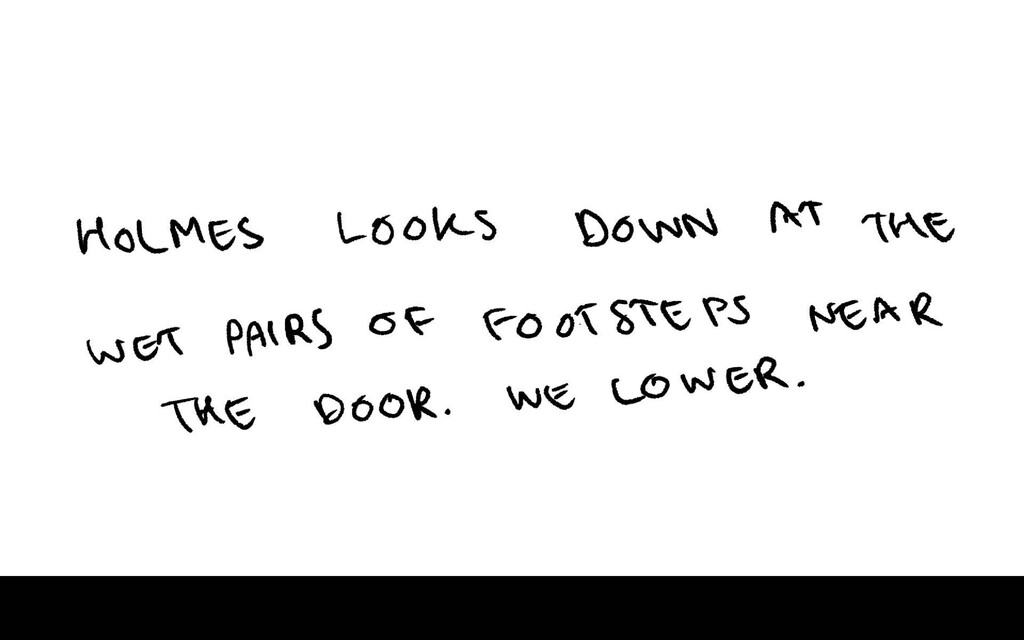 HOLMES LOOKS DOWN AT THE
WET PAIRS OF FOOTSTEPS NEAR
THE DOOR. WE LOWER.